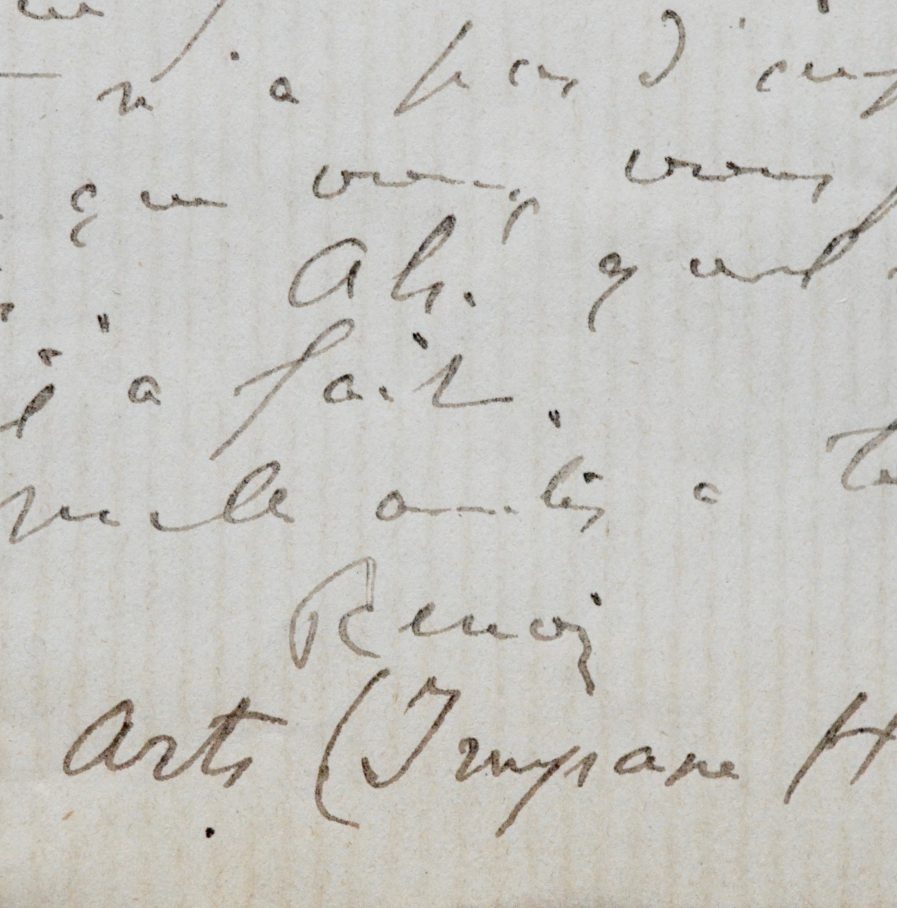 n'a pas d'
que vous vous
Ah. quel
a fait.
mille amitiés a
Renoir
Arts (Impasse H